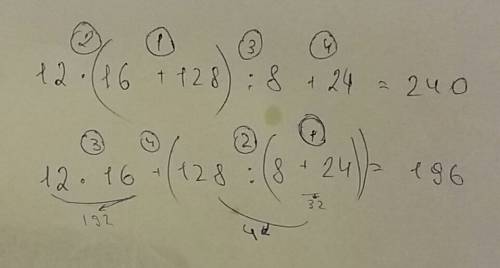 ② ① ③ ④
12 · (16 + 128) : 8 + 24 = 240
③ ④ ② ①
12 · 16 + (128 : (8 + 24)) = 196
192 4 32